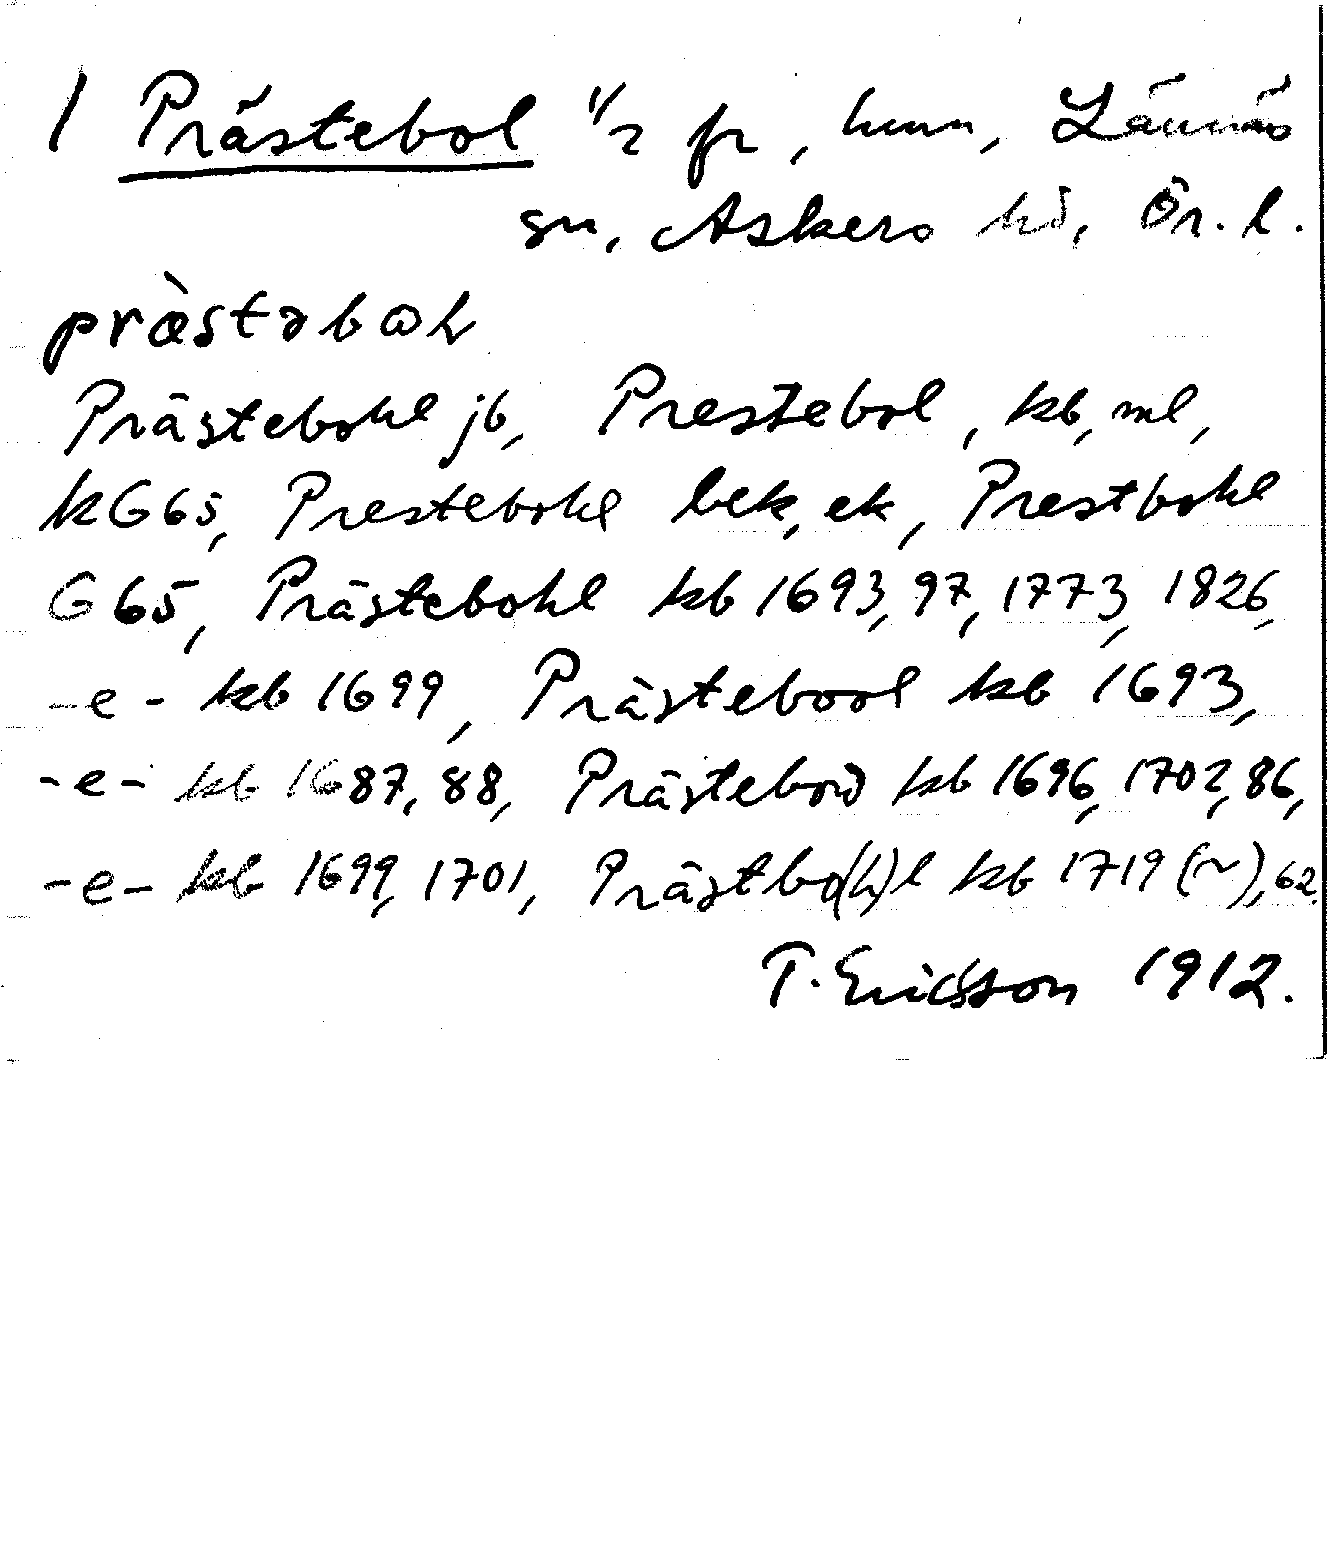 1 Prästebol 1/2 fr, hmn, Lännäs
sn, Askers hd, Ör. l.
præ̀stəbɷl
Prästebohl jb, Prestebol, kb, ml,
kG65, Prestebohl bek, ek, Prestbohl
G65, Prästebohl kb 1693, 97, 1773, 1826,
-e- kb 1699, Prästebool kb 1693,
-e- kb 1687, 88, Prästebod kb 1696, 1702, 86,
-e- kb 1699, 1701, Prästbo(h)l kb 1719 (~), 62.
T. Ericsson 1912.